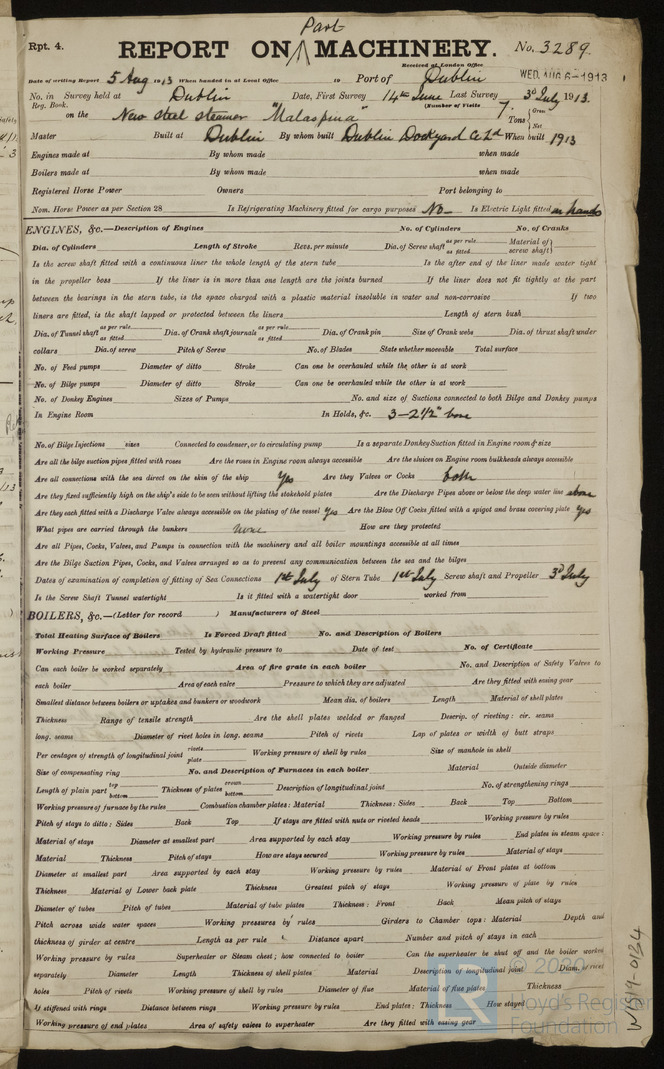 Rpt. 4.
Part
REPORT ON MACHINERY. No. 3289.
Received at London Office
WED. AUG 6 - 1913
Date of writing Report 5 Aug 1913 When handed in at Local Office 19 Port of Dublin
No. in Survey held at Dublin Date, First Survey 14th June Last Survey 3d July 1913.
Reg. Book. (Number of Visits 7.
on the New steel steamer "Malaspina" Tons { Gross Net
Master Built at Dublin By whom built Dublin Dockyard Co Ld When built 1913
Engines made at By whom made when made
Boilers made at By whom made when made
Registered Horse Power Owners Port belonging to
Nom. Horse Power as per Section 28 Is Refrigerating Machinery fitted for cargo purposes No Is Electric Light fitted in hands
ENGINES, &c.—Description of Engines No. of Cylinders No. of Cranks
Dia. of Cylinders Length of Stroke Revs. per minute Dia. of Screw shaft as per rule as fitted Material of screw shaft
Is the screw shaft fitted with a continuous liner the whole length of the stern tube Is the after end of the liner made water tight
in the propeller boss If the liner is in more than one length are the joints burned If the liner does not fit tightly at the part
between the bearings in the stern tube, is the space charged with a plastic material insoluble in water and non-corrosive If two
liners are fitted, is the shaft lapped or protected between the liners Length of stern bush
Dia. of Tunnel shaft as per rule as fitted Dia. of Crank shaft journals as per rule as fitted Dia. of Crank pin Size of Crank webs Dia. of thrust shaft under
collars Dia. of screw Pitch of Screw No. of Blades State whether moveable Total surface
No. of Feed pumps Diameter of ditto Stroke Can one be overhauled while the other is at work
No. of Bilge pumps Diameter of ditto Stroke Can one be overhauled while the other is at work
No. of Donkey Engines Sizes of Pumps No. and size of Suctions connected to both Bilge and Donkey pumps
In Engine Room In Holds, &c. 3-2½" bore
No. of Bilge Injections sizes Connected to condenser, or to circulating pump Is a separate Donkey Suction fitted in Engine room & size
Are all the bilge suction pipes fitted with roses Are the roses in Engine room always accessible Are the sluices on Engine room bulkheads always accessible
Are all connections with the sea direct on the skin of the ship Yes Are they Valves or Cocks both
Are they fixed sufficiently high on the ship's side to be seen without lifting the stokehold plates Are the Discharge Pipes above or below the deep water line above
Are they each fitted with a Discharge Valve always accessible on the plating of the vessel Yes Are the Blow Off Cocks fitted with a spigot and brass covering plate Yes
What pipes are carried through the bunkers none How are they protected
Are all Pipes, Cocks, Valves, and Pumps in connection with the machinery and all boiler mountings accessible at all times
Are the Bilge Suction Pipes, Cocks, and Valves arranged so as to prevent any communication between the sea and the bilges
Dates of examination of completion of fitting of Sea Connections 1st July of Stern Tube 1st July Screw shaft and Propeller 3d July
Is the Screw Shaft Tunnel watertight Is it fitted with a watertight door worked from
BOILERS, &c.—(Letter for record ) Manufacturers of Steel
Total Heating Surface of Boilers Is Forced Draft fitted No. and Description of Boilers
Working Pressure Tested by hydraulic pressure to Date of test No. of Certificate
Can each boiler be worked separately Area of fire grate in each boiler No. and Description of Safety Valves to
each boiler Area of each valve Pressure to which they are adjusted Are they fitted with easing gear
Smallest distance between boilers or uptakes and bunkers or woodwork Mean dia. of boilers Length Material of shell plates
Thickness Range of tensile strength Are the shell plates welded or flanged Descrip. of riveting: cir. seams
long. seams Diameter of rivet holes in long. seams Pitch of rivets Lap of plates or width of butt straps
Per centages of strength of longitudinal joint rivets plate Working pressure of shell by rules Size of manhole in shell
Size of compensating ring No. and Description of Furnaces in each boiler Material Outside diameter
Length of plain part top bottom Thickness of plates crown bottom Description of longitudinal joint No. of strengthening rings
Working pressure of furnace by the rules Combustion chamber plates: Material Thickness: Sides Back Top Bottom
Pitch of stays to ditto: Sides Back Top If stays are fitted with nuts or riveted heads Working pressure by rules
Material of stays Diameter at smallest part Area supported by each stay Working pressure by rules End plates in steam space:
Material Thickness Pitch of stays How are stays secured Working pressure by rules Material of stays
Diameter at smallest part Area supported by each stay Working pressure by rules Material of Front plates at bottom
Thickness Material of Lower back plate Thickness Greatest pitch of stays Working pressure of plate by rules
Diameter of tubes Pitch of tubes Material of tube plates Thickness: Front Back Mean pitch of stays
Pitch across wide water spaces Working pressures by rules Girders to Chamber tops: Material Depth and
thickness of girder at centre Length as per rule Distance apart Number and pitch of stays in each
Working pressure by rules Superheater or Steam chest; how connected to boiler Can the superheater be shut off and the boiler worked
separately Diameter Length Thickness of shell plates Material Description of longitudinal joint Diam. of rivet
holes Pitch of rivets Working pressure of shell by rules Diameter of flue Material of flue plates Thickness
If stiffened with rings Distance between rings Working pressure by rules End plates: Thickness How stayed
Working pressure of end plates Area of safety valves to superheater Are they fitted with easing gear
© 2020
Lloyd's Register
Foundation
W1149-0134